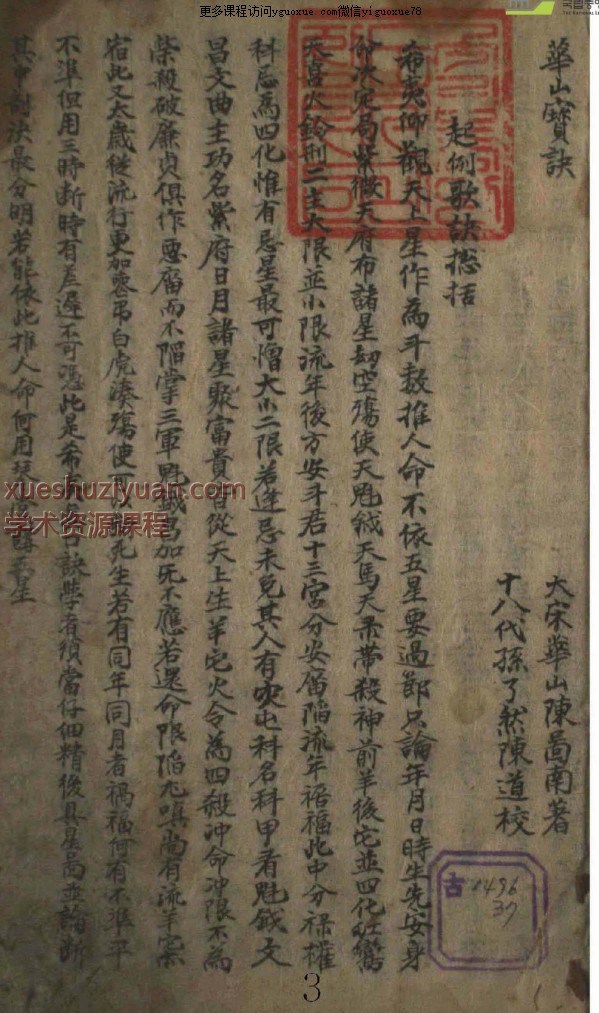 更多课程访问yiguoxue.com微信yiguoxue78
華山寳訣
大宋華山陳啚南著
十八代孫了然陳道校
起例歌訣揔括
希夷仰觀天上星作為斗数推人命不依五星要過節只論年月日時生先安身
命次定局紫微天府布諸星刼空殤使天魁鉞天馬天禄帶殺神前羊後它並四化紅鸞
天喜火鈴刑二主大限並小限流年後方安斗君十三宮分安庿陷流年禍福此中分祿權
科忌為四化惟有忌星最可憎大小二限若逢忌未免其人有灾屯科名科甲看魁鉞文
昌文曲主功名紫府日月諸星聚富貴皆從天上生羊它火令為四殺冲命冲限不為
榮殺破廉貞俱作惡庿而不陷掌三軍魁鉞
加死不應若還命限陷尤嗔尚有流羊
宿此又太歲從流行更加喪吊白虎湊殤使可以
死生若有同年同月者禍福何有不準乎
不準但用三時断時有差遲不可憑此是希夷
口訣學者須當仔細精後具星啚並論断
其中剖決最分明若能依此推人命何用
星
xueshuziyuan.com
学术资源课程
古
1496
37
3